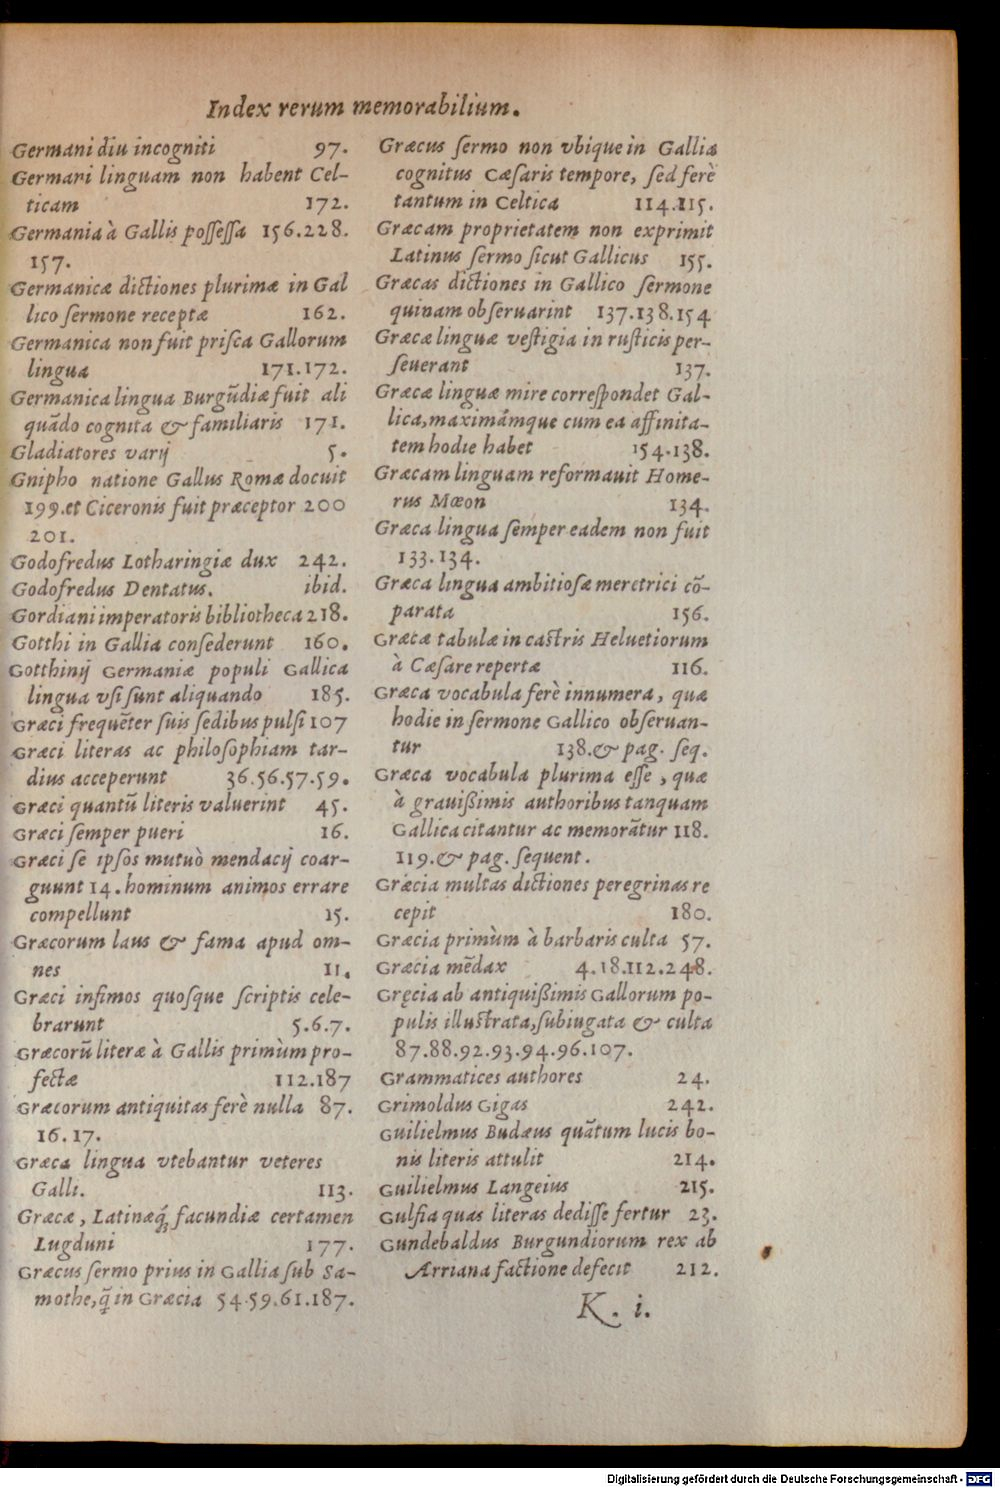 Index rerum memorabilium.
Germani diu incogniti 97.
Germani linguam non habent Cel-
ticam 172.
Germania à Gallis possessa 156.228.
157.
Germanicæ dictiones plurimæ in Gal
lico sermone receptæ 162.
Germanica non fuit prisca Gallorum
lingua 171.172.
Germanica lingua Burgũdiæ fuit ali
quãdo cognita & familiaris 171.
Gladiatores varij 5.
Gnipho natione Gallus Romæ docuit
199.et Ciceronis fuit præceptor 200
201.
Godofredus Lotharingiæ dux 242.
Godofredus Dentatus. ibid.
Gordiani imperatoris bibliotheca 218.
Gotthi in Gallia consederunt 160.
Gotthinij Germaniæ populi Gallica
lingua vsi sunt aliquando 185.
Græci frequẽter suis sedibus pulsi 107
Græci literas ac philosophiam tar-
dius acceperunt 36.56.57.59.
Græci quantũ literis valuerint 45.
Græci semper pueri 16.
Græci se ipsos mutuò mendacij coar-
guunt 14. hominum animos errare
compellunt 15.
Græcorum laus & fama apud om-
nes 11.
Græci infimos quosque scriptis cele-
brarunt 5.6.7.
Græcorũ literæ à Gallis primùm pro-
fectæ 112.187
Græcorum antiquitas ferè nulla 87.
16.17.
Græca lingua vtebantur veteres
Galli. 113.
Græcæ, Latinæq́; facundiæ certamen
Lugduni 177.
Græcus sermo prius in Gallia sub Sa-
mothe, q̃ in Græcia 54.59.61.187.
Græcus sermo non vbique in Gallia
cognitus Cæsaris tempore, sed ferè
tantum in Celtica 114.115.
Græcam proprietatem non exprimit
Latinus sermo sicut Gallicus 155.
Græcas dictiones in Gallico sermone
quinam obseruarint 137.138.154
Græcæ linguæ vestigia in rusticis per-
seuerant 137.
Græcæ linguæ mire correspondet Gal-
lica, maximámque cum ea affinita-
tem hodie habet 154.138.
Græcam linguam reformauit Home-
rus Mœon 134.
Græca lingua semper eadem non fuit
133.134.
Græca lingua ambitiosæ meretrici cõ-
parata 156.
Græcæ tabulæ in castris Heluetiorum
à Cæsare repertæ 116.
Græca vocabula ferè innumera, quæ
hodie in sermone Gallico obseruan-
tur 138.& pag. seq.
Græca vocabula plurima esse, quæ
à grauißimis authoribus tanquam
Gallica citantur ac memorãtur 118.
119.& pag. sequent.
Græcia multas dictiones peregrinas re
cepit 180.
Græcia primùm à barbaris culta 57.
Græcia mẽdax 4.18.112.248.
Gręcia ab antiquißimis Gallorum po-
pulis illustrata, subiugata & culta
87.88.92.93.94.96.107.
Grammatices authores 24.
Grimoldus Gigas 242.
Guilielmus Budæus quãtum lucis bo-
nis literis attulit 214.
Guilielmus Langeius 215.
Gulfia quas literas dedisse fertur 23.
Gundebaldus Burgundiorum rex ab
Arriana factione defecit 212.
K. i.
Digitalisierung gefördert durch die Deutsche Forschungsgemeinschaft - DFG